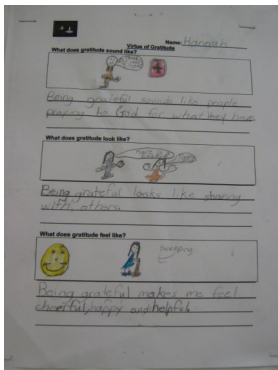 Name: Hannah
Virtue of Gratitude
What does gratitude sound like?
Being grateful sounds like people
praying to God for what they have
What does gratitude look like?
Being grateful looks like sharing
with others
What does gratitude feel like?
Being grateful makes me feel
cheerful, happy and helpful.